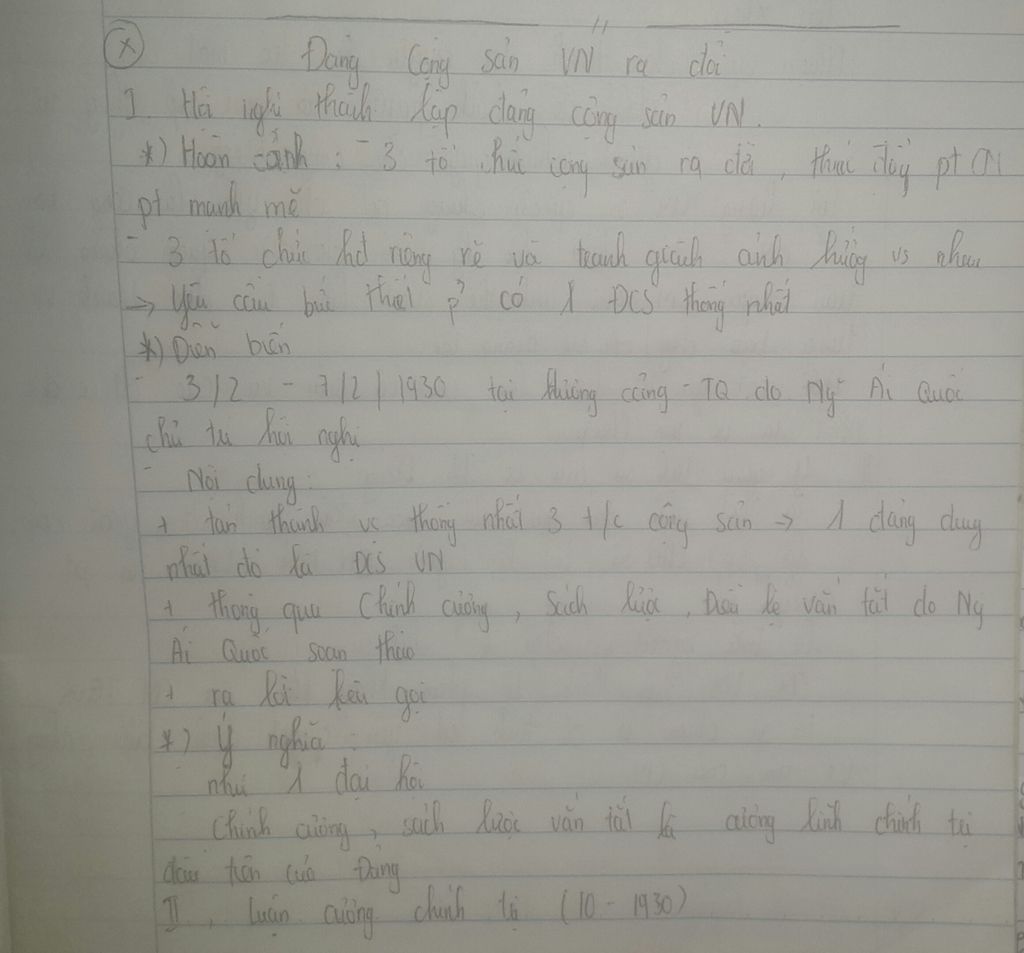 (X) Đảng Cộng sản VN ra đời
I. Hội nghị thành lập đảng cộng sản VN.
*) Hoàn cảnh : - 3 tổ chức cộng sản ra đời, thúc đẩy pt CN
pt mạnh mẽ
- 3 tổ chức hđ riêng rẽ và tranh giành ảnh hưởng vs nhau
→ Yêu cầu bức thiết p² có 1 ĐCS thống nhất
*) Diễn biến
- 3/2 - 7/2/1930 tại Hương cảng - TQ do Ng~ Ái Quốc
chủ trì hội nghị
- Nội dung:
+ tán thành vc thống nhất 3 t/c cộng sản → 1 đảng duy
nhất đó là ĐCS VN
+ thông qua Chính cương, Sách lược, Điều lệ vắn tắt do Ng~
Ái Quốc soạn thảo
+ ra lời kêu gọi
*) Ý nghĩa :
như 1 đại hội
Chính cương, sách lược vắn tắt là cương lĩnh chính trị
đầu tiên của Đảng
II, Luận cương chính trị (10 - 1930)